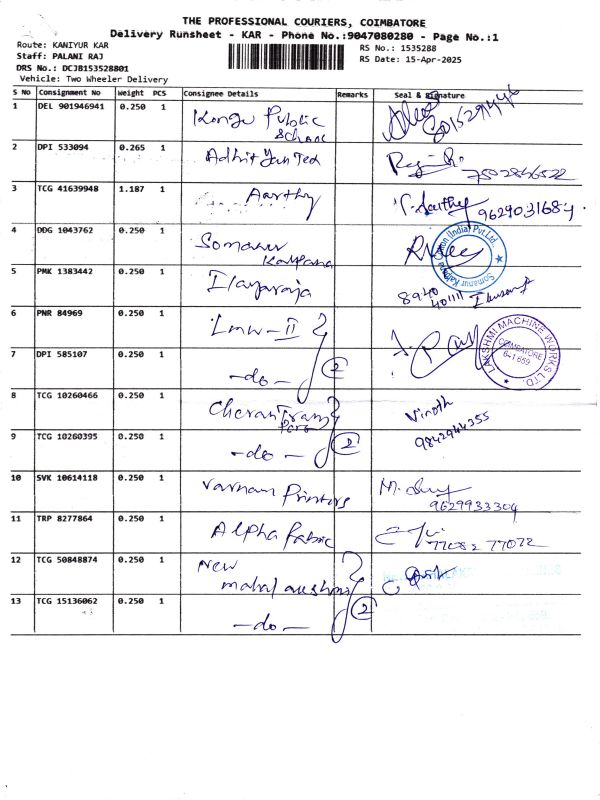 THE PROFESSIONAL COURIERS, COIMBATORE
Delivery Runsheet - KAR - Phone No.:9047080280 - Page No.:1
Route: KANIYUR KAR
Staff: PALANI RAJ
DRS No.: DCJB153528801
Vehicle: Two Wheeler Delivery
RS No.: 1535288
RS Date: 15-Apr-2025
S No Consignment No Weight PCS Consignee Details Remarks Seal & Signature
1 DEL 901946941 0.250 1 Kongu Public School
2 DPI 533094 0.265 1 7502846522
3 TCG 41639948 1.187 1 Aarthy T. Aarthy 9629031684
4 DDG 1043762 0.250 1 Somanur Kalpana
Somanur Kalpana Cotton (India) Pvt Ltd.
5 PMK 1383442 0.250 1 Ilayaraja 8940 401111
6 PNR 84969 0.250 1 Lmw-II
LAKSHMI MACHINE WORKS LTD. COIMBATORE
7 DPI 585107 0.250 1 -do- 2
8 TCG 10260466 0.250 1 Cheran Vinoth
9842944355
9 TCG 10260395 0.250 1 -do- 2
10 SVK 10614118 0.250 1 Varnam Printers
9629933304
11 TRP 8277864 0.250 1 Alpha fabric 77082 77072
12 TCG 50848874 0.250 1 New mahal
13 TCG 15136062 0.250 1 -do- 2